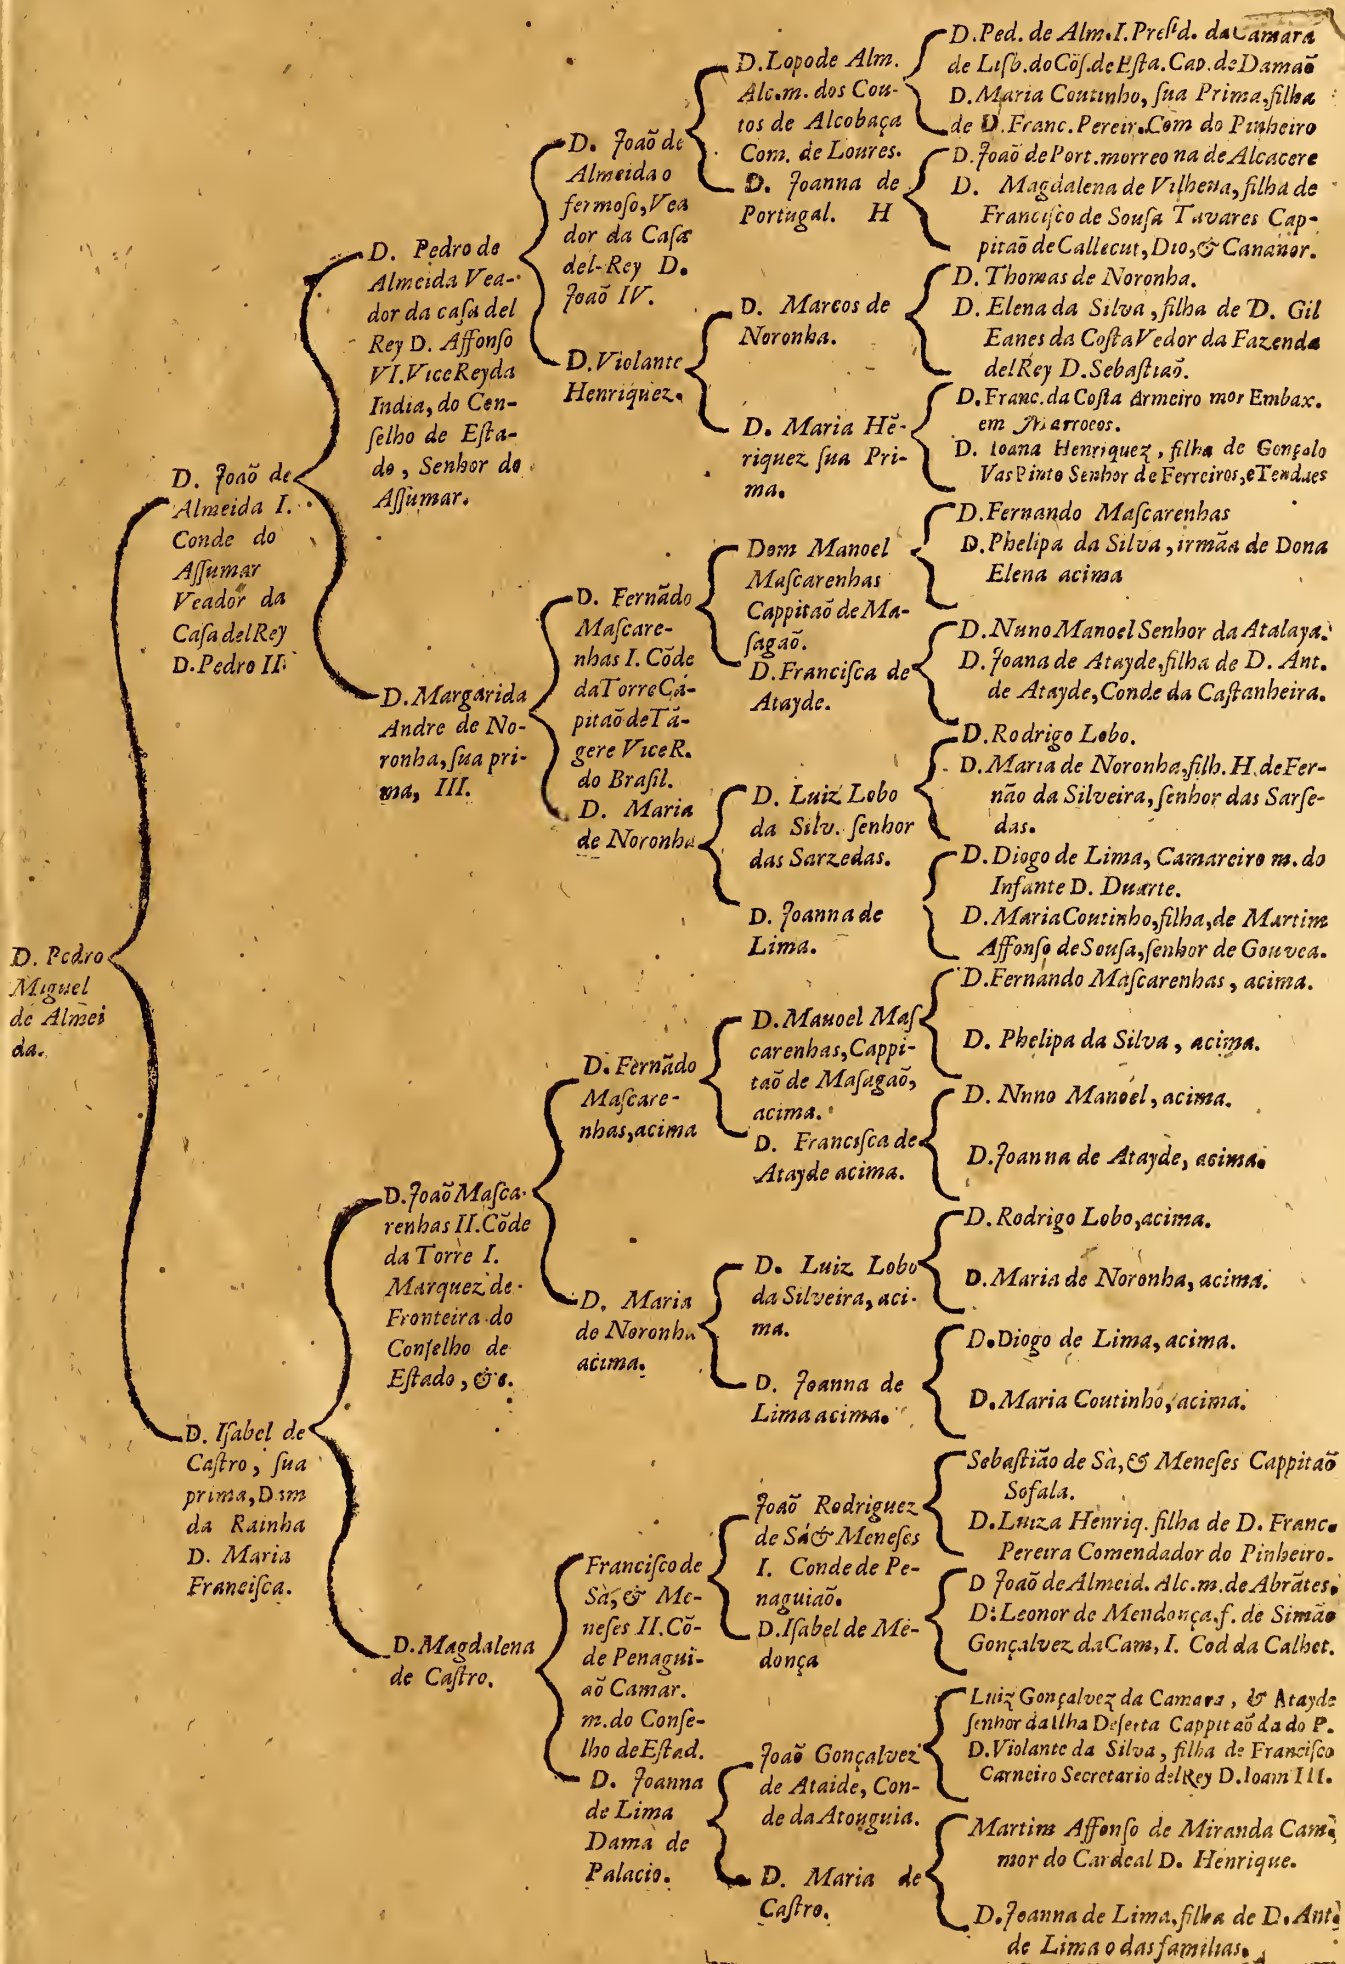 D. Pedro
Miguel
de Almei
da.
D. Joaõ de
Almeida I.
Conde do
Aſſumar
Veador da
Caſa delRey
D. Pedro II.
D. Iſabel de
Caſtro, ſua
prima, Dam
da Rainha
D. Maria
Franciſca.
D. Pedro de
Almeida Vea-
dor da caſa del
Rey D. Affonſo
VI. Vice Rey da
India, do Con-
ſelho de Eſta-
do, Senhor do
Aſſumar.
D. Margarida
Andre de No-
ronha, ſua pri-
ma, III.
D. Joaõ Maſca-
renhas II. Cõde
da Torre I.
Marquez de
Fronteira do
Conſelho de
Eſtado, &c.
D. Magdalena
de Caſtro.
D. Joaõ de
Almeida o
fermoſo, Vea
dor da Caſa
del-Rey D.
Joaõ IV.
D. Violante
Henriquez.
D. Fernãdo
Maſcare-
nhas I. Cõde
da Torre Ca-
pitaõ de Tã-
gere Vice R.
do Braſil.
D. Maria
de Noronha
D. Fernãdo
Maſcare-
nhas, acima
D. Maria
de Noronha
acima.
Franciſco de
Sà, & Me-
neſes II. Cõ-
de Penagui-
aõ Camar.
m. do Conſe-
lho de Eſtad.
D. Joanna
de Lima
Dama de
Palacio.
D. Lopo de Alm.
Alc. m. dos Cou-
tos de Alcobaça
Com. de Loures.
D. Joanna de
Portugal. H
D. Marcos de
Noronha.
D. Maria Hẽ-
riquez ſua Pri-
ma.
Dom Manoel
Maſcarenhas
Cappitaõ de Ma-
ſagaõ.
D. Franciſca de
Atayde.
D. Luiz Lobo
da Silv. ſenhor
das Sarzedas.
D. Joanna de
Lima.
D. Manoel Maſ
carenhas, Cappi-
taõ de Maſagaõ,
acima.
D. Franciſca de
Atayde acima.
D. Luiz Lobo
da Silveira, aci-
ma.
D. Joanna de
Lima acima.
Joaõ Rodriguez
de Sá & Meneſes
I. Conde de Pe-
naguiaõ.
D. Iſabel de Me-
donça
Joaõ Gonçalvez
de Ataide, Con-
de da Atouguia.
D. Maria de
Caſtro.
D. Ped. de Alm. I. Preſid. da Camara
de Liſb. do Cõſ. de Eſta. Cap. de Damaõ
D. Maria Coutinho, ſua Prima, filha
de D. Franc. Pereir. Com do Pinheiro
D. Joaõ de Port. morreo na de Alcacere
D. Magdalena de Vilhena, filha de
Franciſco de Souſa Tavares Cap-
pitaõ de Callecut, Dio, & Cananor.
D. Thomas de Noronha.
D. Elena da Silva, filha de D. Gil
Eanes da Coſta Vedor da Fazenda
delRey D. Sebaſtiaõ.
D. Franc. da Coſta Armeiro mor Embax.
em Marrocos.
D. Ioana Henriquez, filha de Gonçalo
Vas Pinto Senhor de Ferreiros, e Tendaes
D. Fernando Maſcarenhas
D. Phelipa da Silva, irmãa de Dona
Elena acima
D. Nuno Manoel Senhor da Atalaya.
D. Joana de Atayde, filha de D. Ant.
de Atayde, Conde da Caſtanheira.
D. Rodrigo Lobo.
D. Maria de Noronha, filh. H. de Fer-
não da Silveira, ſenhor das Sarſe-
das.
D. Diogo de Lima, Camareiro m. do
Infante D. Duarte.
D. Maria Coutinho, filha, de Martim
Affonſo de Souſa, ſenhor de Gouvea.
D. Fernando Maſcarenhas, acima.
D. Phelipa da Silva, acima.
D. Nnno Manoel, acima.
D. Joanna de Atayde, acima.
D. Rodrigo Lobo, acima.
D. Maria de Noronha, acima.
D. Diogo de Lima, acima.
D. Maria Coutinho, acima.
Sebaſtião de Sà, & Meneſes Cappitaõ
Sofala.
D. Luiza Henriq. filha de D. Franc.
Pereira Comendador do Pinheiro.
D Joaõ de Almeid. Alc. m. de Abrãtes.
D. Leonor de Mendonça, f. de Simão
Gonçalvez da Cam, I. Cod da Calhet.
Luiz Gonçalvez da Camara, & Atayde
ſenhor da Ilha Deſerta Cappitaõ da do P.
D. Violante da Silva, filha de Franciſco
Carneiro Secretario delRey D. Ioam III.
Martim Affonſo de Miranda Cam.
mor do Cardeal D. Henrique.
D. Joanna de Lima, filha de D. Ant.
de Lima o das familias.